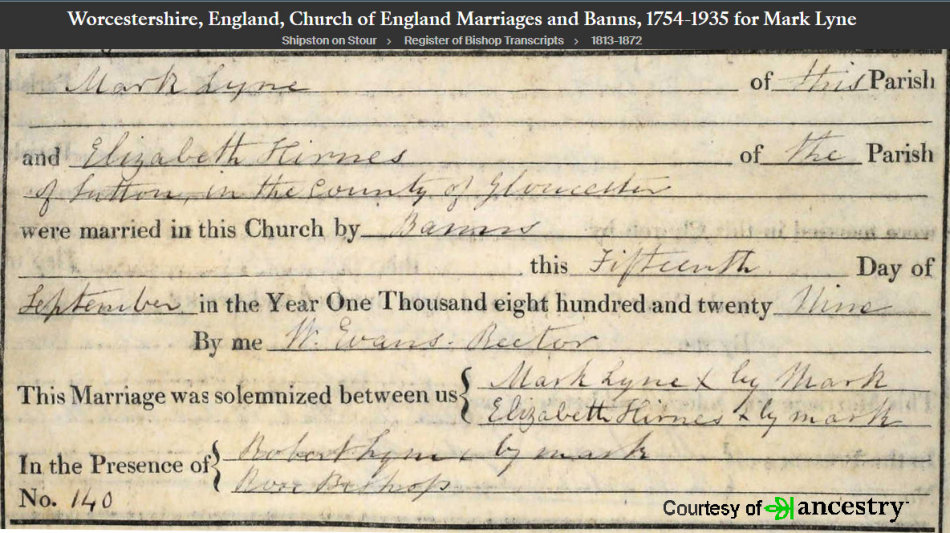 Worcestershire, England, Church of England Marriages and Banns, 1754-1935 for Mark Lyne
Shipston on Stour > Register of Bishop Transcripts > 1813-1872
Mark Lyne of this Parish
and Elizabeth Hirnes of the Parish
of Sutton, in the County of Gloucester
were married in this Church by Banns
this Fifteenth Day of
September in the Year One Thousand eight hundred and twenty Nine
By me W. Evans. Rector
This Marriage was solemnized between us { Mark Lyne X by Mark
Elizabeth Hirnes x by mark
In the Presence of { Robert Lyne x by mark
Bishop
No. 140
Courtesy of ancestry